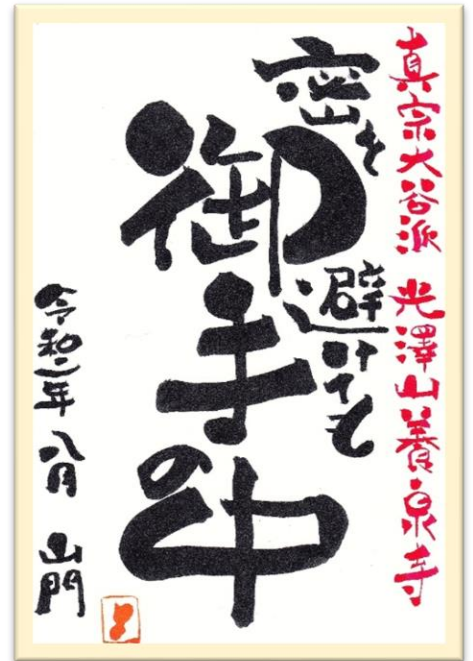 真宗大谷派 光澤山養泉寺
密を避けても
御手の中
令和二年 八月 山門